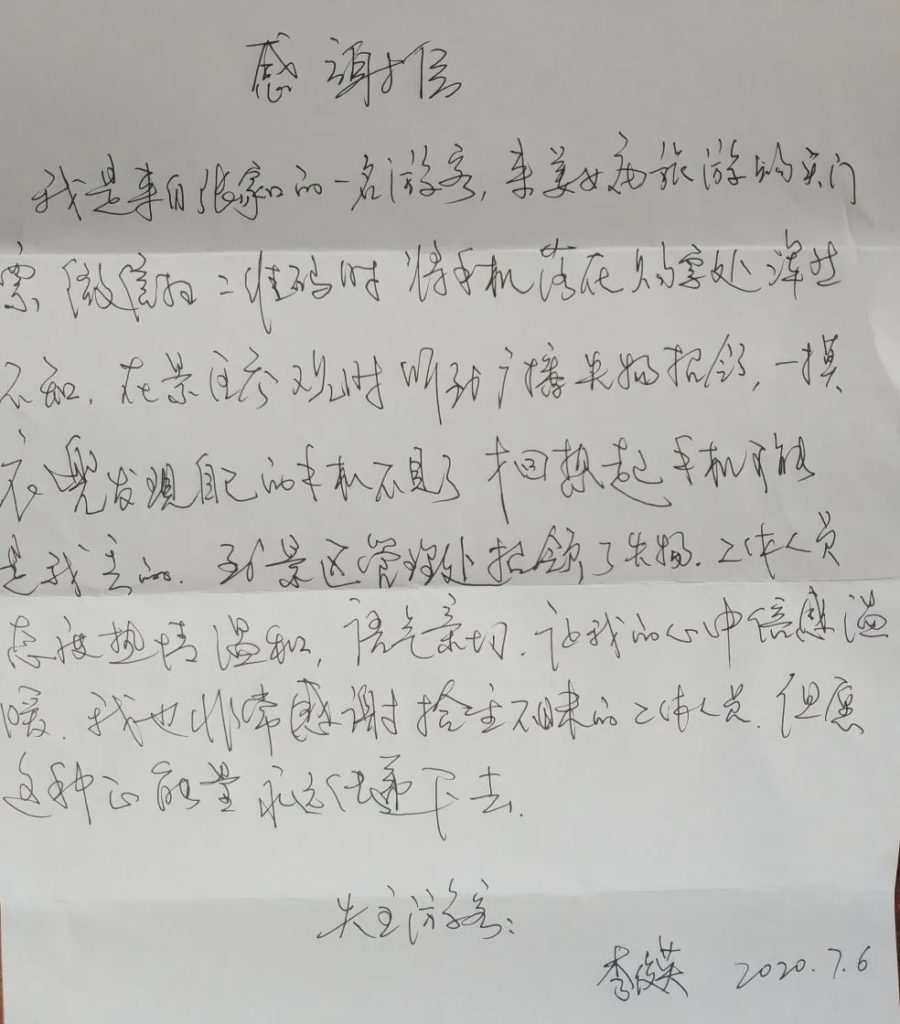 感谢信
我是来自张家口的一名游客,来姜女庙旅游购买门
票微信扫二维码时将手机落在购票处浑然
不知.在景区参观时听到广播失物招领,一摸
衣兜发现自己的手机不见了才回想起手机可能
是我丢的.到景区管理处招领了失物.工作人员
态度热情温和,语气亲切.让我的心中倍感温
暖.我也非常感谢拾金不昧的工作人员.但愿
这种正能量永远传递下去.
失主游客:
李俊英 2020.7.6